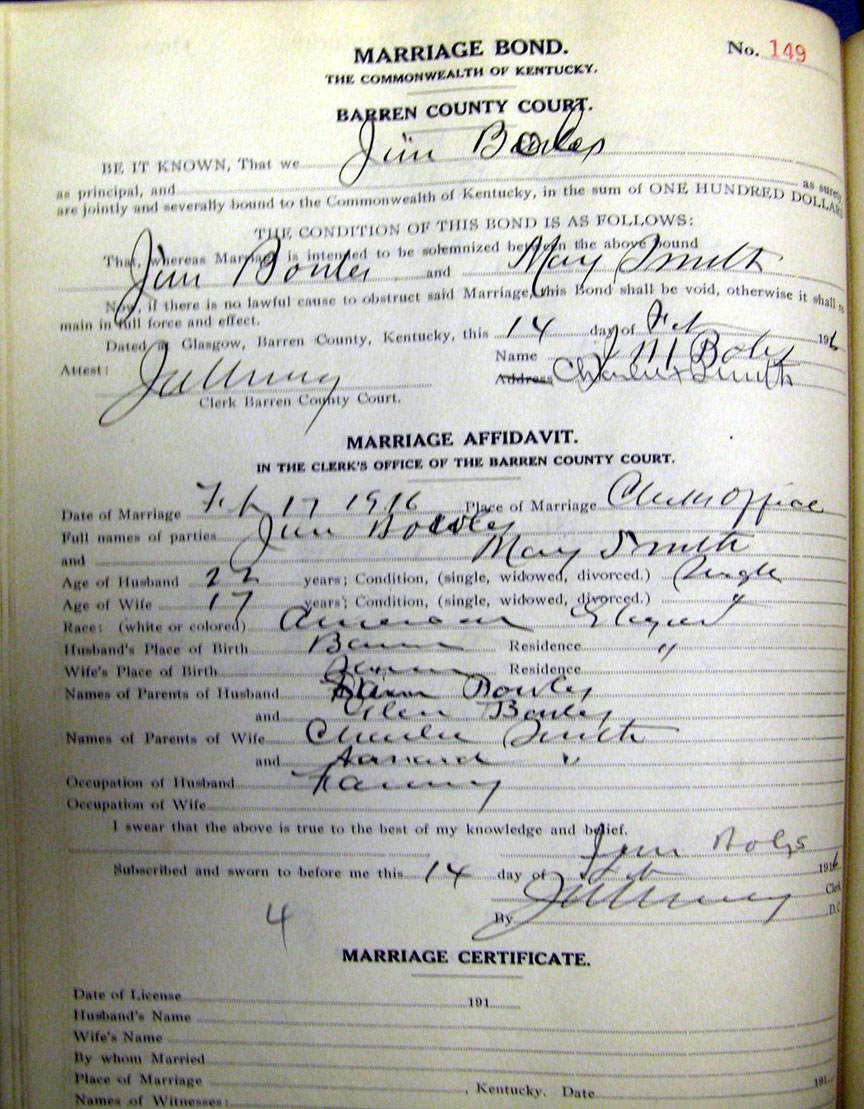 MARRIAGE BOND.
No. 149
THE COMMONWEALTH OF KENTUCKY.
BARREN COUNTY COURT.
BE IT KNOWN, That we Jim Bowles
as principal, and as surety,
are jointly and severally bound to the Commonwealth of Kentucky, in the sum of ONE HUNDRED DOLLARS
THE CONDITION OF THIS BOND IS AS FOLLOWS:
That, whereas Marriage is intended to be solemnized between the above bound
Jim Bowles and Mary Smith
Now, if there is no lawful cause to obstruct said Marriage, this Bond shall be void, otherwise it shall re
main in full force and effect.
Dated at Glasgow, Barren County, Kentucky, this 14 day of Feb 1916
Name Jim Boles
Attest: Address Charlie x Smith
Clerk Barren County Court.
MARRIAGE AFFIDAVIT.
IN THE CLERK'S OFFICE OF THE BARREN COUNTY COURT.
Date of Marriage Feb 17 1916 Place of Marriage Clerks Office
Full names of parties Jim Bowles
and Mary Smith
Age of Husband 22 years; Condition, (single, widowed, divorced.) Single
Age of Wife 17 years; Condition, (single, widowed, divorced.) "
Race: (white or colored)
Husband's Place of Birth Barren Residence "
Wife's Place of Birth Barren Residence
Names of Parents of Husband Bowles
and Bowles
Names of Parents of Wife Charlie Smith
and "
Occupation of Husband Farming
Occupation of Wife
I swear that the above is true to the best of my knowledge and belief.
Jim Boles
Subscribed and sworn to before me this 14 day of Feb 1916
Clerk
By D.C
4
MARRIAGE CERTIFICATE.
Date of License 191
Husband's Name
Wife's Name
By whom Married
Place of Marriage , Kentucky. Date 191
Names of Witnesses: